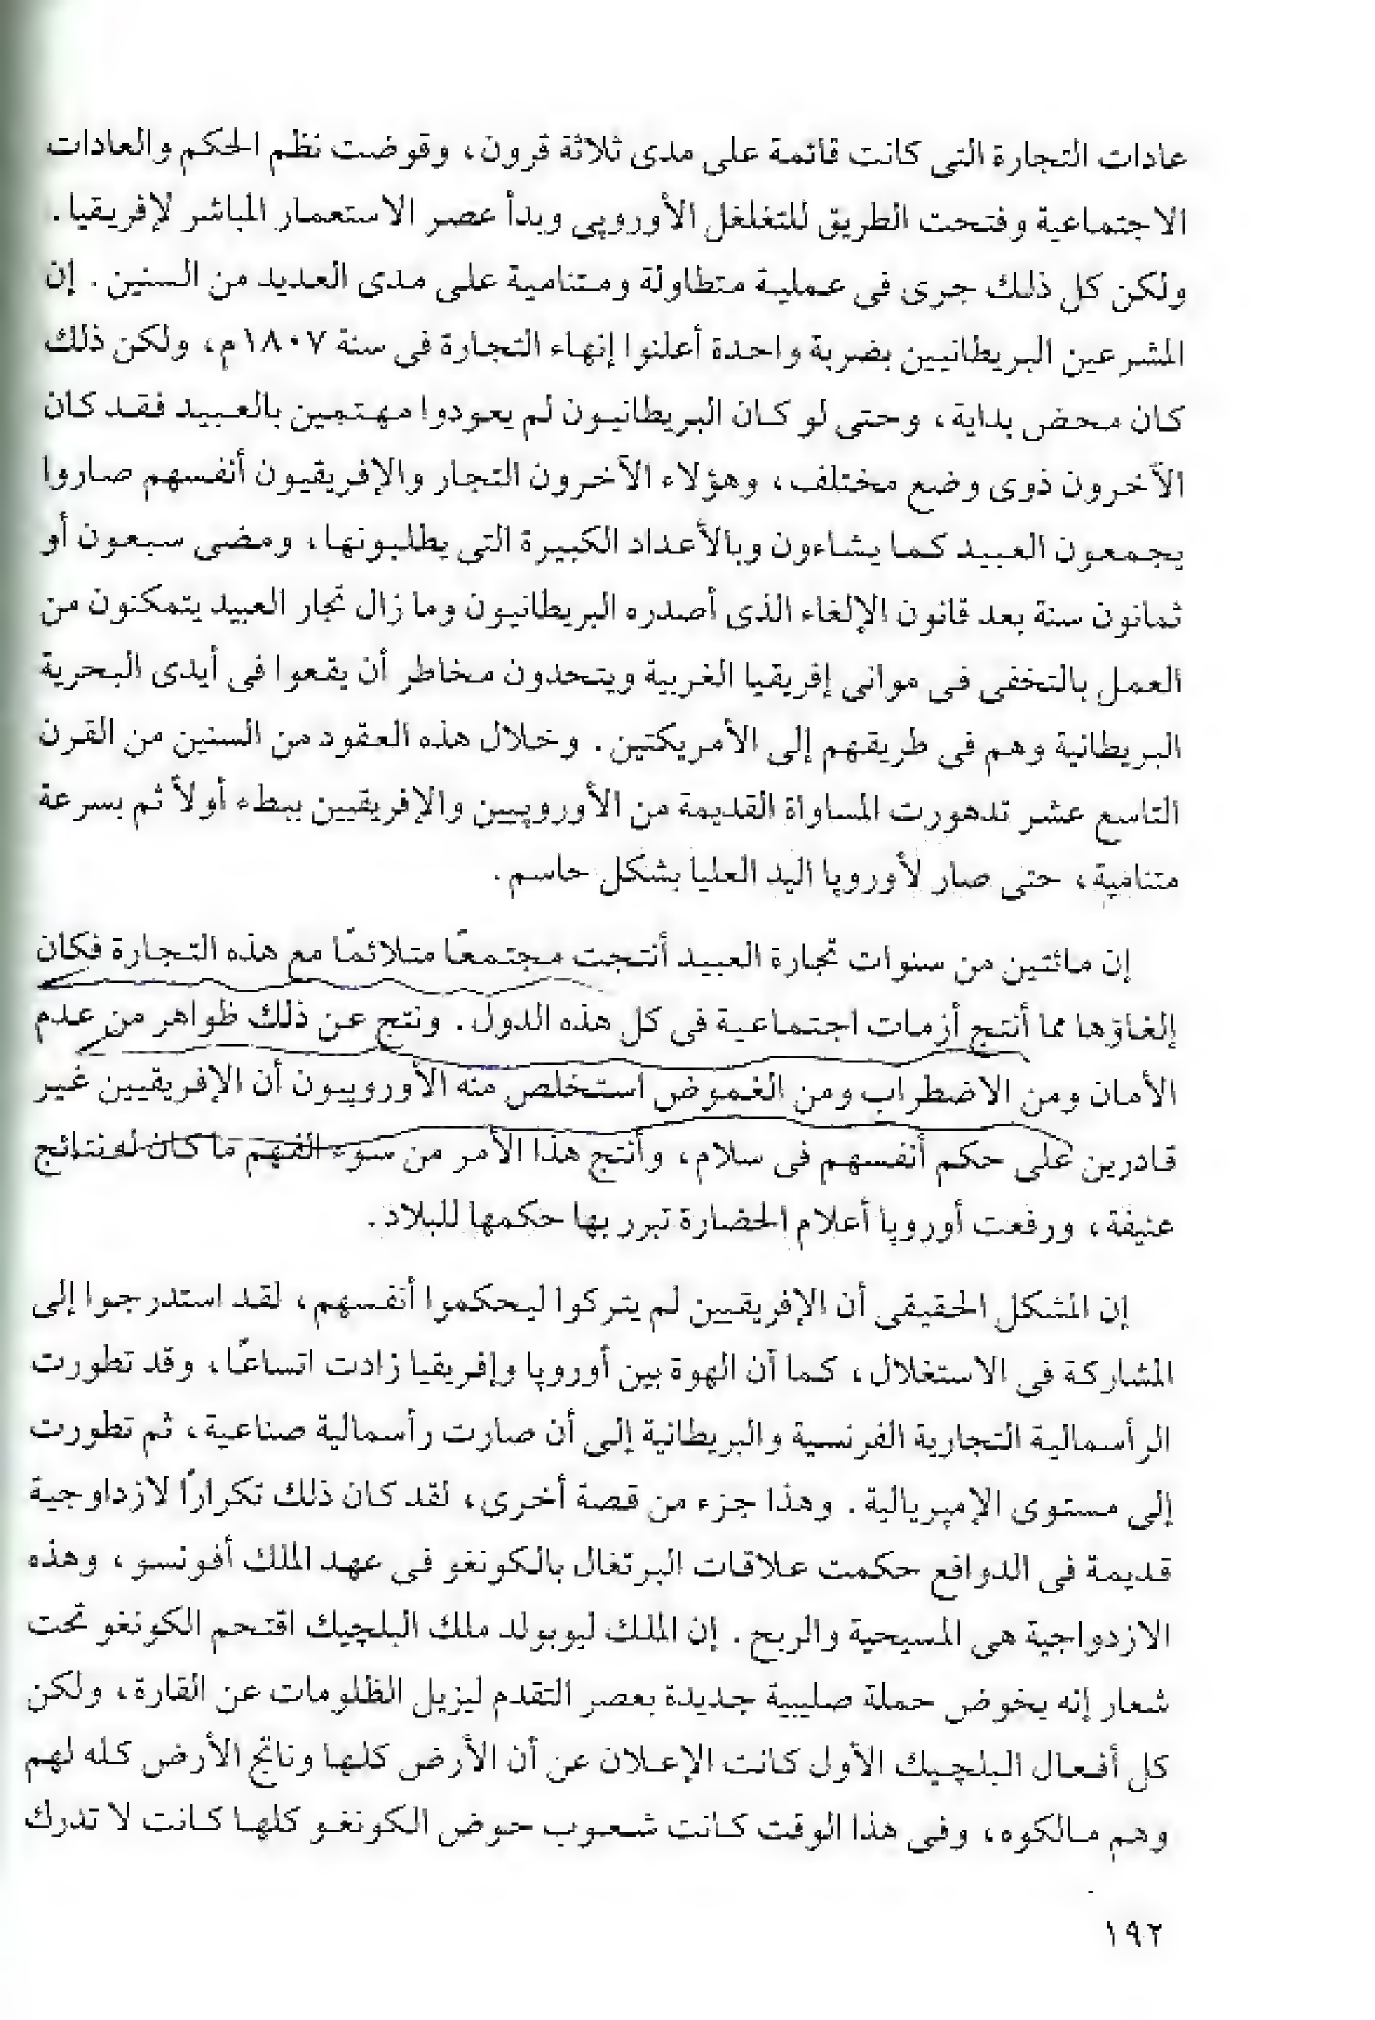 عادات التجارة التى كانت قائمة على مدى ثلاثة قرون، وقوضت نظم الحكم والعادات
الاجتماعية وفتحت الطريق للتغلغل الأوروپى وبدأ عصر الاستعمار المباشر لإفريقيا.
ولكن كل ذلك جرى فى عملية متطاولة ومتنامية على مدى العديد من السنين. إن
المشرعين البريطانيين بضربة واحدة أعلنوا إنهاء التجارة فى سنة ١٨٠٧م، ولكن ذلك
كان محض بداية، وحتى لو كان البريطانيون لم يعودوا مهتمين بالعبيد فقد كان
الآخرون ذوى وضع مختلف، وهؤلاء الآخرون التجار والإفريقيون أنفسهم صاروا
يجمعون العبيد كما يشاءون وبالأعداد الكبيرة التى يطلبونها، ومضى سبعون أو
ثمانون سنة بعد قانون الإلغاء الذى أصدره البريطانيون وما زال تجار العبيد يتمكنون من
العمل بالتخفى فى موانى إفريقيا الغربية ويتحدون مخاطر أن يقعوا فى أيدى البحرية
البريطانية وهم فى طريقهم إلى الأمريكتين. وخلال هذه العقود من السنين من القرن
التاسع عشر تدهورت المساواة القديمة من الأوروپيين والإفريقيين ببطء أولاً ثم بسرعة
متنامية، حتى صار لأوروپا اليد العليا بشكل حاسم.
إن مائتين من سنوات تجارة العبيد أنتجت مجتمعًا متلائمًا مع هذه التجارة فكان
إلغاؤها مما أنتج أزمات اجتماعية فى كل هذه الدول. ونتج عن ذلك ظواهر من عدم
الأمان ومن الاضطراب ومن الغموض استخلص منه الأوروپيون أن الإفريقيين غير
قادرين على حكم أنفسهم فى سلام، وأنتج هذا الأمر من سوء الفهم ما كان له نتائج
عنيفة، ورفعت أوروپا أعلام الحضارة تبرر بها حكمها للبلاد.
إن المشكل الحقيقى أن الإفريقيين لم يتركوا ليحكموا أنفسهم، لقد استدرجوا إلى
المشاركة فى الاستغلال، كما أن الهوة بين أوروپا وإفريقيا زادت اتساعًا، وقد تطورت
الرأسمالية التجارية الفرنسية والبريطانية إلى أن صارت رأسمالية صناعية، ثم تطورت
إلى مستوى الإمپريالية. وهذا جزء من قصة أخرى، لقد كان ذلك تكرارًا لازداوجية
قديمة فى الدوافع حكمت علاقات البرتغال بالكونغو فى عهد الملك أفونسو، وهذه
الازدواجية هى المسيحية والربح. إن الملك ليوبولد ملك البلچيك اقتحم الكونغو تحت
شعار إنه يخوض حملة صليبية جديدة بعصر التقدم ليزيل الظلومات عن القارة، ولكن
كل أفعال البلچيك الأول كانت الإعلان عن أن الأرض كلها وناتج الأرض كله لهم
وهم مالكوه، وفى هذا الوقت كانت شعوب حوض الكونغو كلها كانت لا تدرك
١٩٢